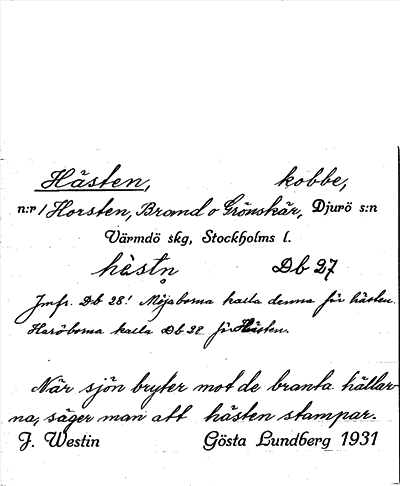 Hästen, kobbe,
n:r 1 Horsten, Brand o Grönskär, Djurö s:n
Värmdö skg, Stockholms l.
hèstn̥ Db 27
Jmfr. Db 28! Möjaborna kalla denna för hästen.
Haröborna kalla Db 28 för Hästen.
När sjön bryter mot de branta hällar-
na, säger man att hästen stampar.
J. Westin Gösta Lundberg 1931